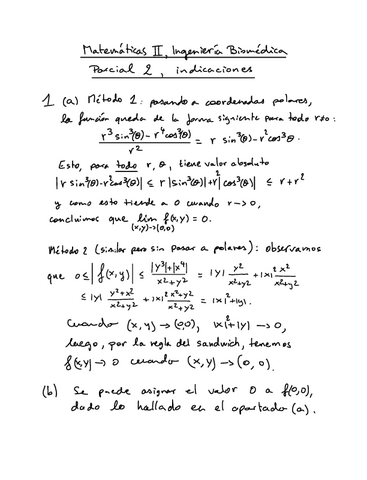 Matemáticas II, Ingeniería Biomédica
Parcial 2, indicaciones
1 (a) Método 1: pasando a coordenadas polares,
la función queda de la forma siguiente para todo r≠0:
(r³ sin³(θ) - r⁴ cos³(θ)) / r² = r sin³(θ) - r² cos³θ.
Esto, para todo r, θ, tiene valor absoluto
|r sin³(θ) - r² cos³(θ)| ≤ r|sin³(θ)| + r²|cos³(θ)| ≤ r + r²
y como esto tiende a 0 cuando r → 0,
concluimos que lim f(x,y) = 0.
(x,y)→(0,0)
Método 2 (similar pero sin pasar a polares): observamos
que 0 ≤ |f(x,y)| ≤ (|y³|+|x⁴|) / (x²+y²) = |y| y²/(x²+y²) + |x|² x²/(x²+y²)
≤ |y| (y²+x²)/(x²+y²) + |x|² (x²+y²)/(x²+y²) = |x|²+|y|.
Cuando (x,y) → (0,0), |x|²+|y| → 0,
luego, por la regla del sandwich, tenemos
f(x,y) → 0 cuando (x,y) → (0,0).
(b) Se puede asignar el valor 0 a f(0,0),
dado lo hallado en el apartado (a).